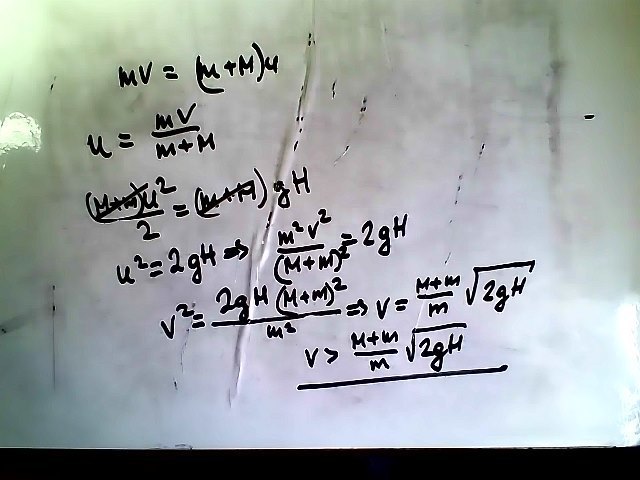 mv = (m+M)u
u = mv/(m+M)
(M+m)u²/2 = (m+M)gH
u² = 2gH ⇒ m²v²/(M+m)² = 2gH
v² = 2gH(M+m)²/m² ⇒ v = (M+m)/m √(2gH)
v > (M+m)/m √(2gH)